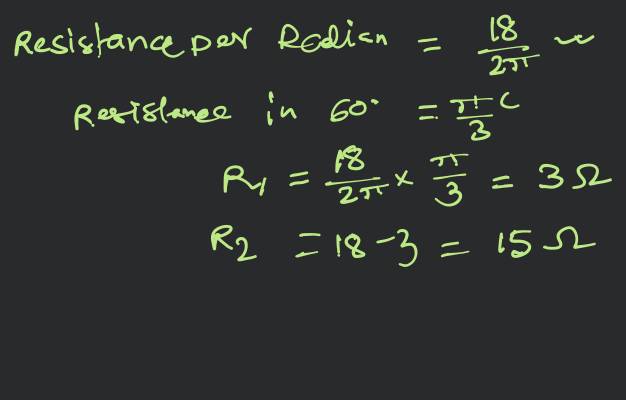 Resistance per Radian = 18/2π Ω
Resistance in 60° = π/3 c
R₁ = 18/2π × π/3 = 3 Ω
R₂ = 18 - 3 = 15 Ω